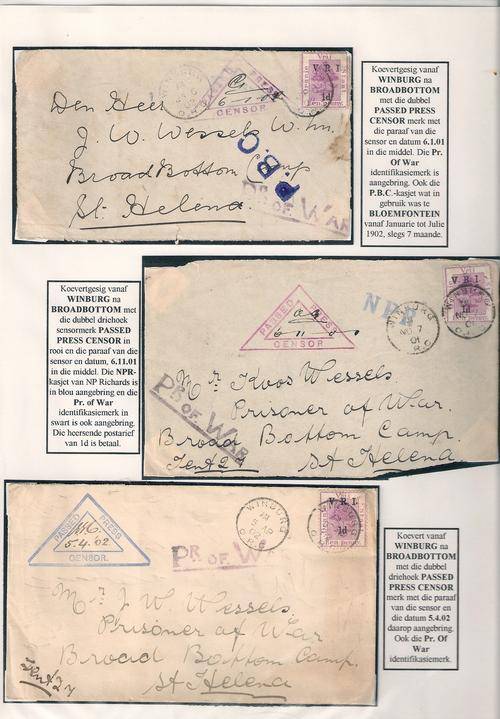 PASSED PRESS
CENSOR
V.R.I.
1d
Den Heer
J. W. Wessels W.zn.
Broad Bottom Camp
St. Helena
P.B.C.
PR. OF WAR
Koevertgesig vanaf
WINBURG na
BROADBOTTOM
met die dubbel
PASSED PRESS
CENSOR merk met
die paraaf van die
sensor en datum 6.1.01
in die middel. Die Pr.
Of War
identifikasiemerk is
aangebring. Ook die
P.B.C.-kasjet wat in
gebruik was te
BLOEMFONTEIN
vanaf Januarie tot Julie
1902, slegs 7 maande.
Koevertgesig vanaf
WINBURG na
BROADBOTTOM met
die dubbel driehoek
sensormerk PASSED
PRESS CENSOR in
rooi en die paraaf van die
sensor en datum, 6.11.01
in die middel. Die NPR-
kasjet van NP Richards is
in blou aanbring en die
Pr. of War
identifikasiemerk in
swart is ook aangebring.
Die heersende postarief
van 1d is betaal.
PASSED PRESS
CENSOR
6 11
NPR
WINBURG
NO 7
01
O.R.C.
V.R.I.
1d
WINBURG
PR. OF WAR
Mr Koos Wessels
Prisoner of War.
Broad Bottom Camp.
Tent 27
St Helena
PASSED PRESS
5.4.'02
CENSOR.
WINBURG
V.R.I.
1d
PR. OF WAR
Mr J W Wessels
Prisoner of War
Broad Bottom Camp.
Tent 27
St Helena
Koevert vanaf
WINBURG na
BROADBOTTOM
met die dubbel
driehoek PASSED
PRESS CENSOR
merk met die paraaf
van die sensor en
die datum 5.4.02
daarop aangebring.
Ook die Pr. Of
War
identifikasiemerk.